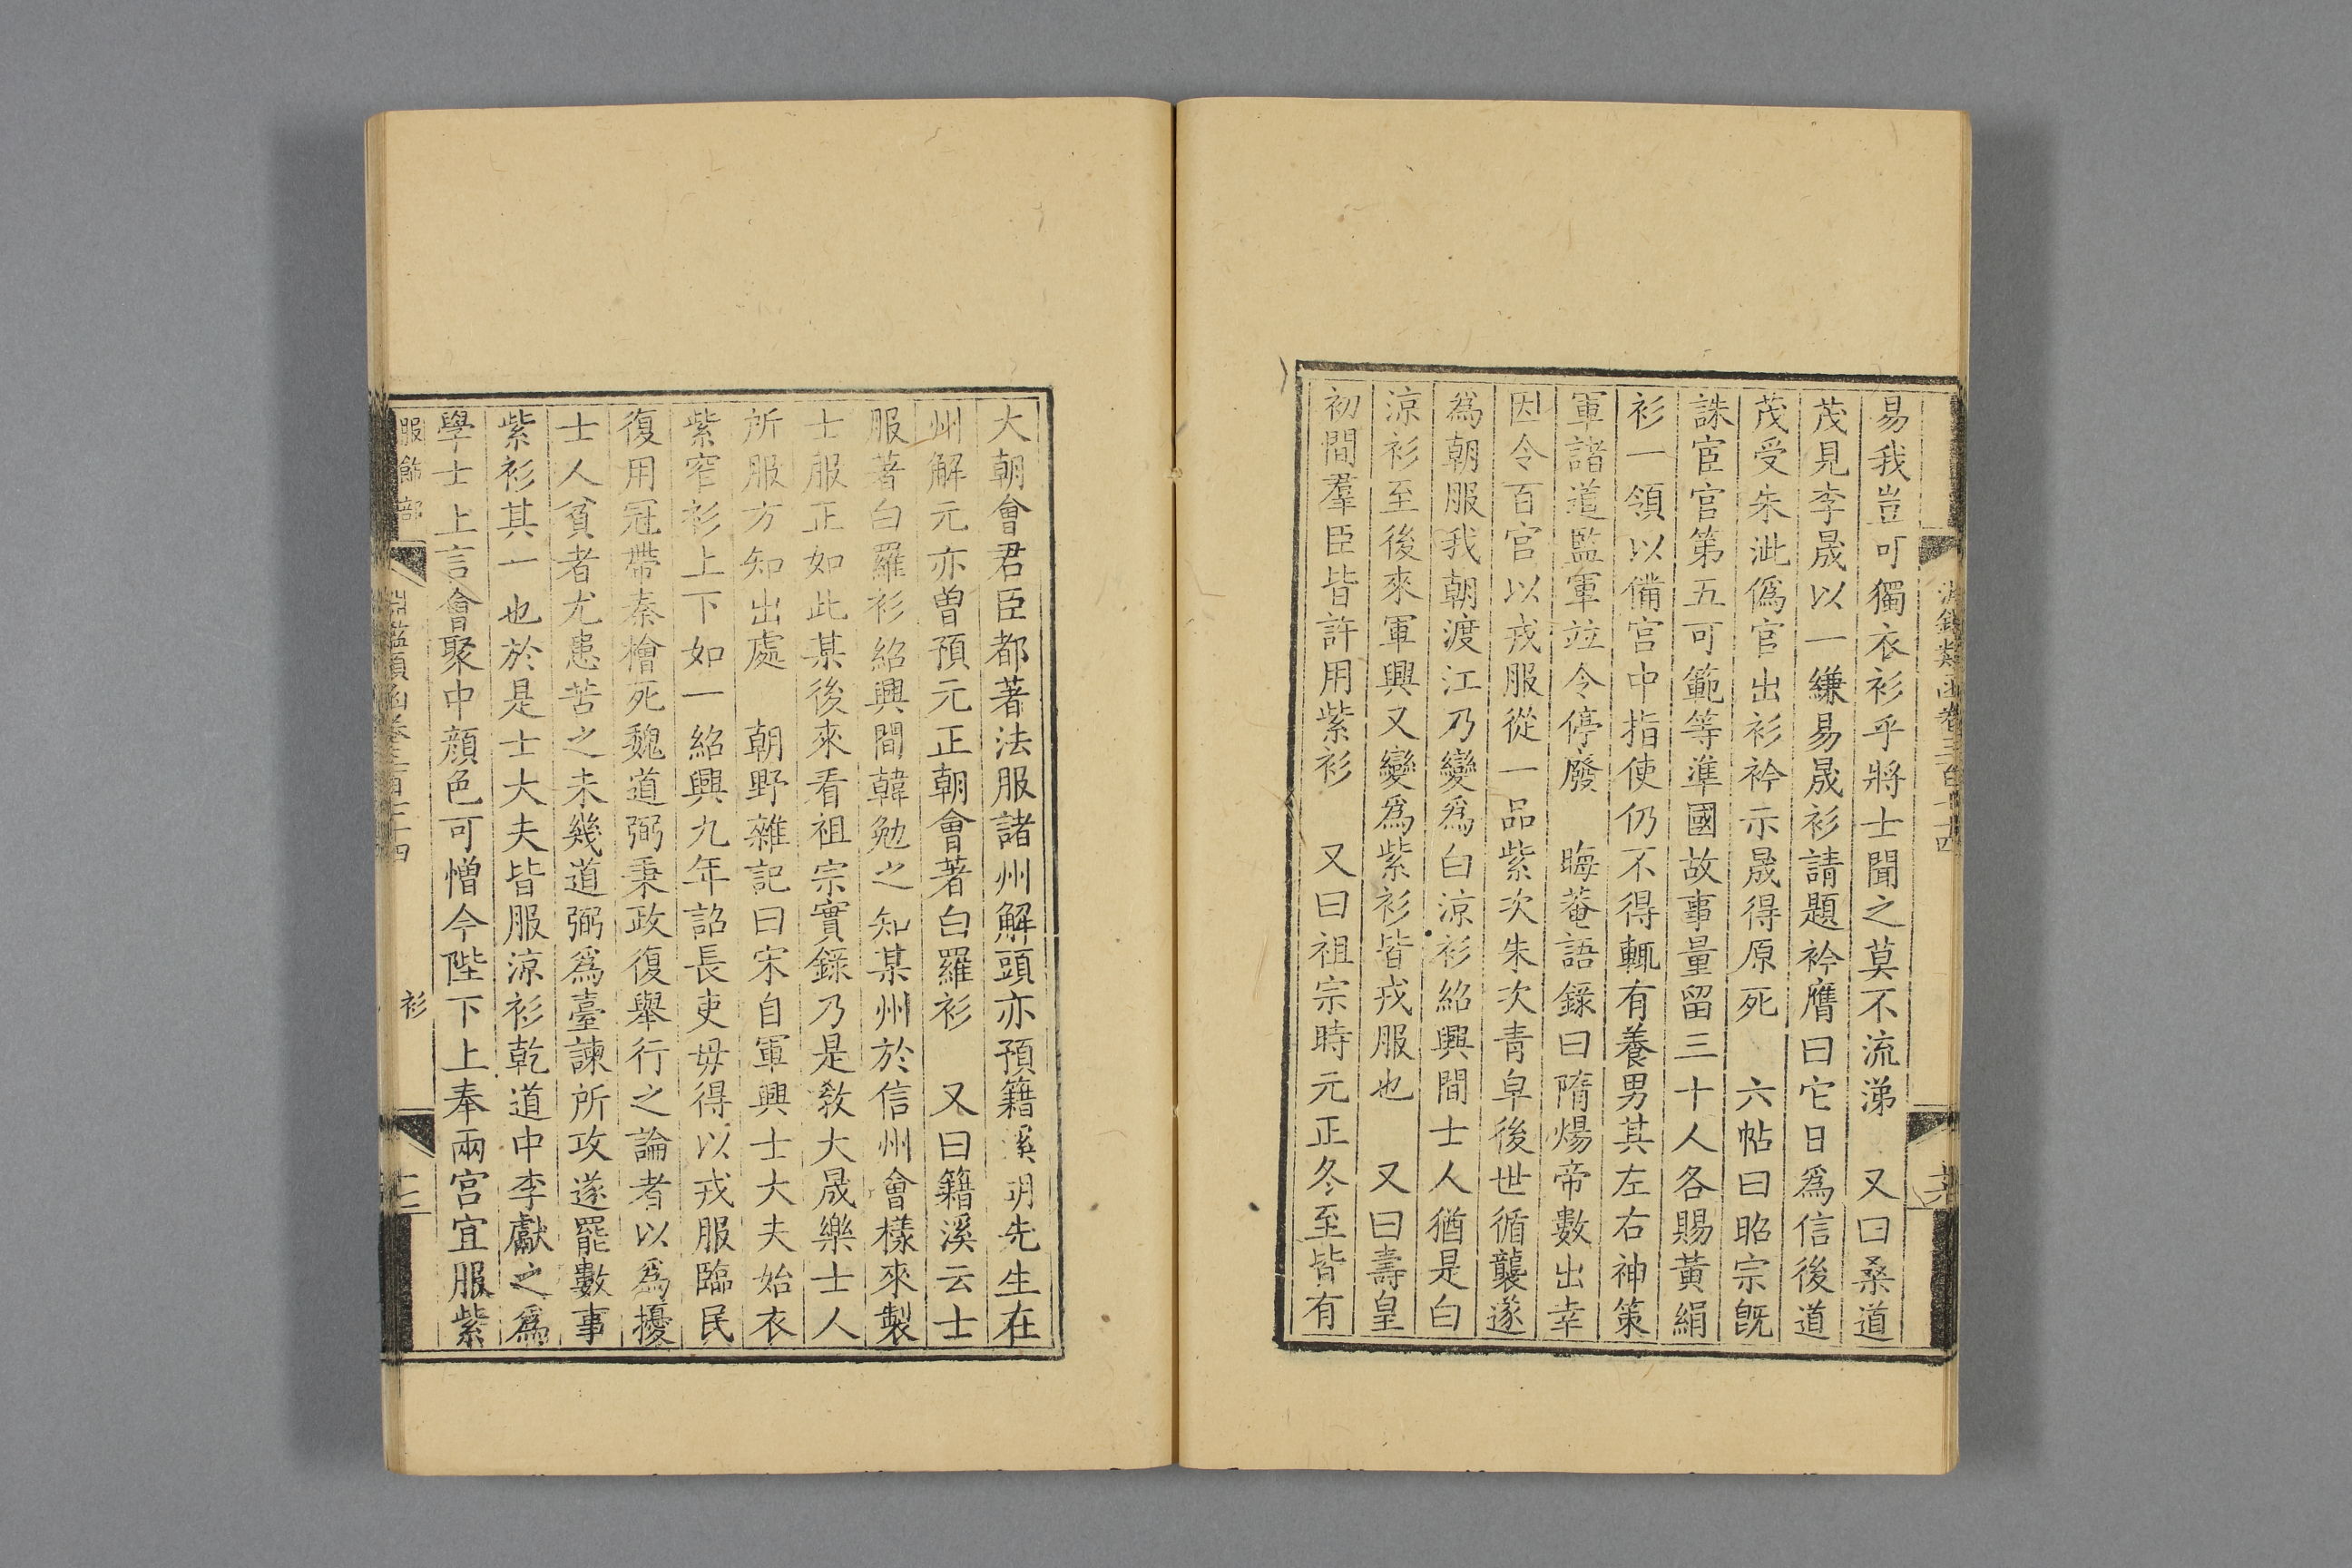 易我豈可獨衣衫乎將士聞之莫不流涕　又曰桑道
茂見李晟以一縑易晟衫請題衿膺曰它日爲信後道
茂受朱泚僞官出衫衿示晟得原死　六帖曰昭宗旣
誅宦官第五可範等準國故事量留三十人各賜黃絹
衫一領以備宫中指使仍不得輒有養男其左右神策
軍諸道監軍竝令停廢　晦菴語錄曰隋煬帝數出幸
因令百官以戎服從一品紫次朱次青皁後世循襲遂
爲朝服我朝渡江乃變爲白涼衫紹興間士人猶是白
涼衫至後來軍興又變爲紫衫皆戎服也　又曰壽皇
初間羣臣皆許用紫衫　又曰祖宗時元正冬至皆有
大朝會君臣都著法服諸州解頭亦預籍溪胡先生在
州解元亦曾預元正朝會著白羅衫　又曰籍溪云士
服著白羅衫紹興間韓勉之知某州於信州會樣來製
士服正如此某後來看祖宗實錄乃是敎大晟樂士人
所服方知出處　朝野雜記曰宋自軍興士大夫始衣
紫窄衫上下如一紹興九年詔長吏毋得以戎服臨民
復用冠帶秦檜死魏道弼秉政復舉行之論者以爲擾
士人貧者尤患苦之未幾道弼爲臺諫所攻遂罷數事
紫衫其一也於是士大夫皆服涼衫乾道中李獻之爲
學士上言會聚中顔色可憎今陛下上奉兩宫宜服紫
服飾部
淵鑑類函卷三百七十四
衫